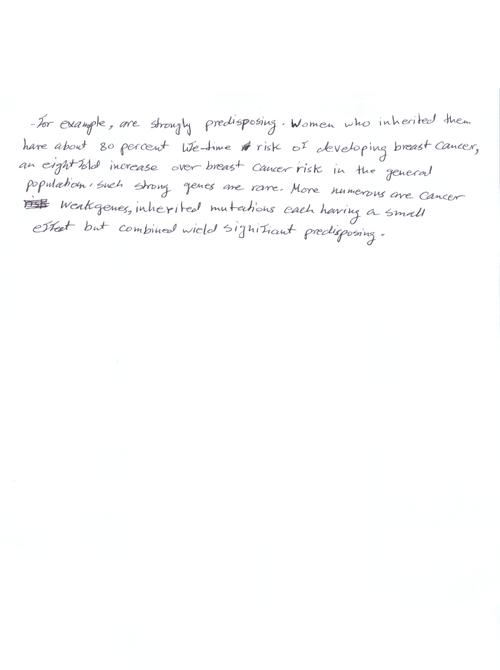 -For example, are strongly predisposing. Women who inherited them
have about 80 percent life-time risk of developing breast cancer,
an eightfold increase over breast cancer risk in the general
population. such strong genes are rare. More numerous are cancer
weakgenes, inherited mutations each having a small
effect but combined wield significant predisposing.